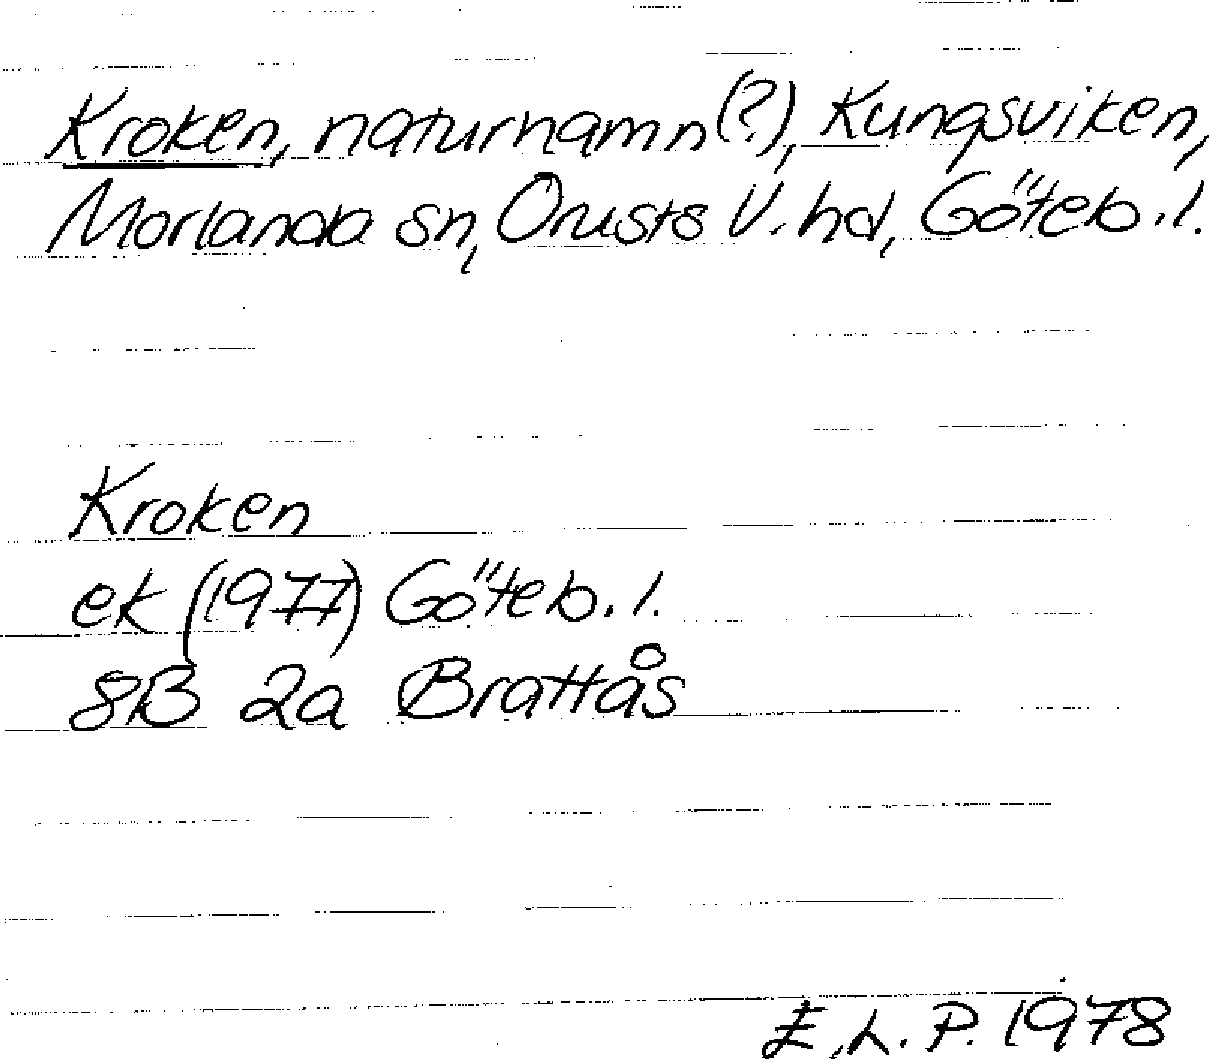 Kroken, naturnamn(?), Kungsviken,
Morlanda sn, Orusts V. hd, Göteb. l.
Kroken
ek (1977) Göteb. l.
8B 2a Brattås
E.L.P. 1978